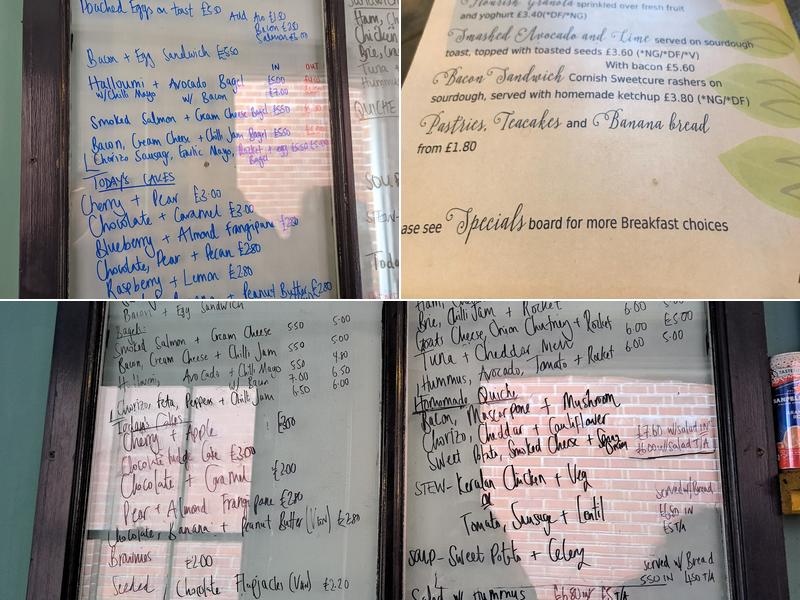 Poached Eggs on toast £5.50
Add Avo £1.50
Bacon £2.00
Salmon £3.00
Bacon + Egg Sandwich £5.50
IN OUT
Halloumi + Avocado Bagel £5.00
w/ Chilli Mayo w/ Bacon £7.00
Smoked Salmon + Cream Cheese Bagel £5.50
Bacon, Cream Cheese + Chilli Jam Bagel £5.50
Chorizo Sausage, Garlic Mayo, Rocket + egg
Bagel
TODAYS CAKES
Cherry + Pear £3.00
Chocolate + Caramel £3.00
Blueberry + Almond Frangipane £2.80
Chocolate, Pear + Pecan £2.80
Raspberry + Lemon £2.80
Banana + Peanut Butter £2.80
Ham,
Chicken
Brie,
Tuna +
Hummus
QUICHE
SOUP
STEW-
Toda
Nourish Granola sprinkled over fresh fruit
and yoghurt £3.40(*DF/*NG)
Smashed Avocado and Lime served on sourdough
toast, topped with toasted seeds £3.60 (*NG/*DF/*V)
With bacon £5.60
Bacon Sandwich Cornish Sweetcure rashers on
sourdough, served with homemade ketchup £3.80 (*NG/*DF)
Pastries, Teacakes and Banana bread
from £1.80
ase see Specials board for more Breakfast choices
Bacon + Egg Sandwich
Bagels:
Smoked Salmon + Cream Cheese 5.50 5.00
Bacon, Cream Cheese + Chilli Jam 5.50 5.00
Halloumi, Avocado + Chilli Mayo 5.50 4.80
w/ Bacon 7.00 6.50
Chorizo, feta, Peppers + Chilli Jam 6.50 6.00
Todays Cakes
Cherry + Apple £3.00
Chocolate fudge Cake £3.00
Chocolate + Caramel £2.00
Pear + Almond Frangipane £2.80
Chocolate, Banana + Peanut Butter (VGN) £2.80
Brownies £2.00
Seeded Chocolate Flapjacks (VGN) £2.20
Brie, Chilli Jam + Rocket 6.00 5.00
Goats Cheese, Onion Chutney + Rocket 6.00 £5.00
Tuna + Cheddar Melt 6.00 5.00
Hummus, Avocado, Tomato + Rocket
Homemade Quiche
Bacon, Mascarpone + Mushroom
Chorizo, Cheddar + Cauliflower
Sweet Potato, Smoked Cheese + Spring Onion
£7.60 w/salad IN
£6.00 w/salad T/A
STEW- Keralan Chicken + Veg
or
Tomato, Sausage + Lentil
served w/ Bread
£6.50 IN
£5 T/A
SOUP- Sweet Potato + Celery
served w/ Bread
5.50 IN 4.50 T/A
Salad w/ Hummus £6.80 IN £5 T/A